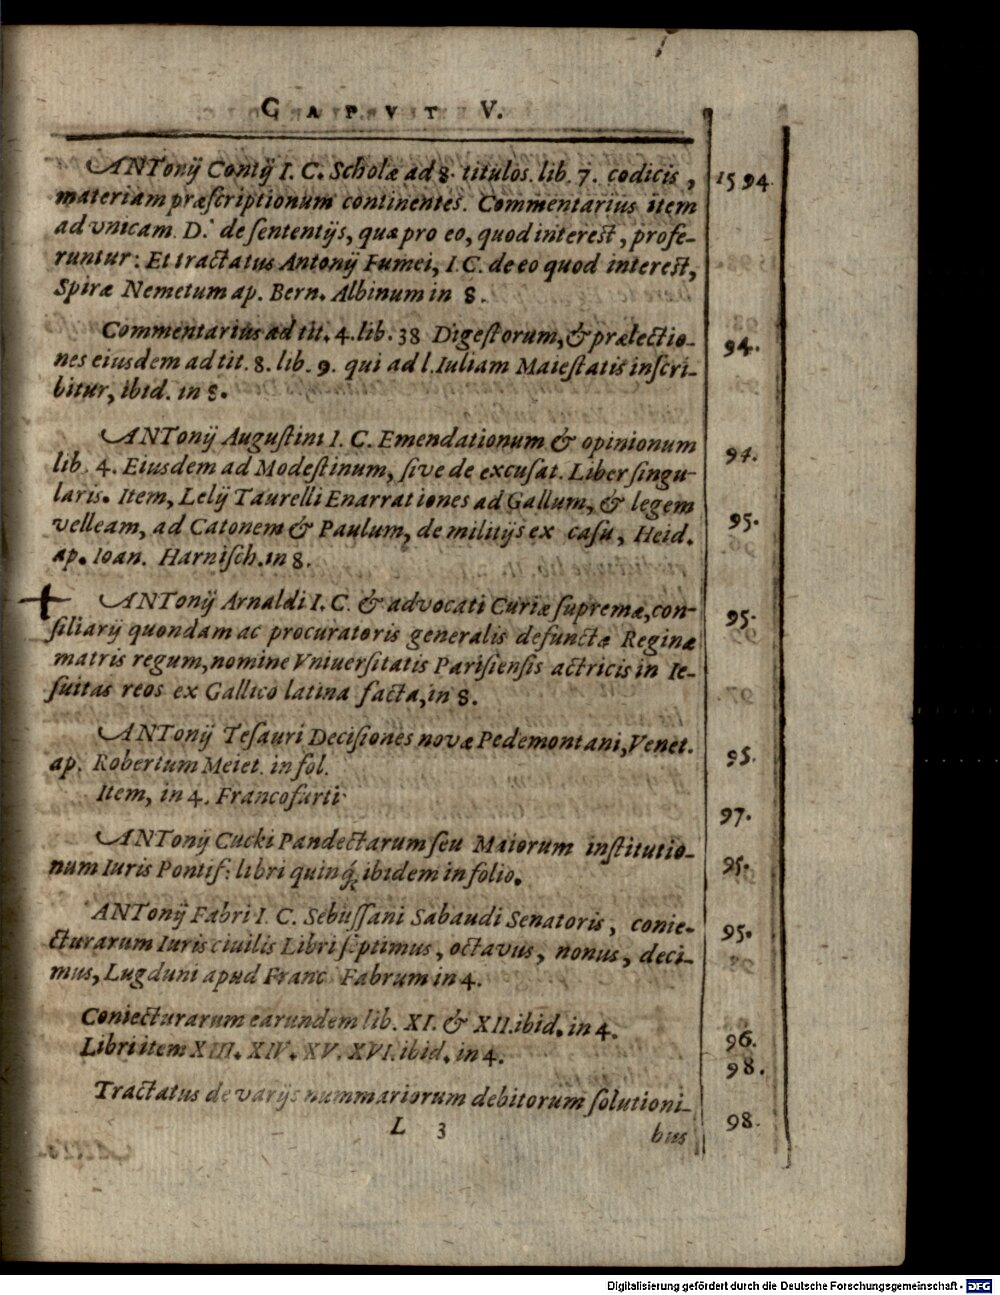 CAPVT V.
ANTonij Contij I. C. Scholæ ad 8. titulos. lib. 7. codicis, 1594.
materiam præscriptionum continentes. Commentarius item
ad vnicam D. de sententijs, quæ pro eo, quod interest, profe-
runtur: Et tractatus Antonij Fumei, I.C. de eo quod interest,
Spiræ Nemetum ap. Bern. Albinum in 8.
Commentarius ad tit. 4. lib. 38 Digestorum, & prælectio- 94.
nes eiusdem ad tit. 8. lib. 9. qui ad l. Iuliam Maiestatis inscri-
bitur, ibid. in 8.
ANTonij Augustini I. C. Emendationum & opinionum 94.
lib. 4. Eiusdem ad Modestinum, sive de excusat. Liber singu-
laris. Item, Lelij Taurelli Enarrationes ad Gallum, & legem 95.
velleam, ad Catonem & Paulum, de militijs ex casu, Heid.
ap. Ioan. Harnisch. in 8.
ANTonij Arnaldi I. C. & advocati Curiæ supremæ, con- 95.
siliarij quondam ac procuratoris generalis defunctæ Reginæ
matris regum, nomine Vniuersitatis Parisiensis actricis in Ie-
suitas reos ex Gallico latina facta, in 8.
ANTonij Tesauri Decisiones novæ Pedemontani, Venet. 95.
ap. Robertum Meiet. in fol.
Item, in 4. Francofurti 97.
ANTonij Cucki Pandectarum seu Maiorum institutio- 95.
num Iuris Pontif: libri quinq; ibidem in folio.
ANTonij Fabri I. C. Sebussani Sabaudi Senatoris, conie- 95.
cturarum Iuris ciuilis Libri septimus, octavus, nonus, deci-
mus, Lugduni apud Franc Fabrum in 4.
Coniecturarum earundem lib. XI. & XII. ibid. in 4. 96.
Libri item XIII. XIV. XV. XVI. ibid. in 4. 98.
Tractatus de varijs nummariorum debitorum solutioni- 98.
L 3 bus
Digitalisierung gefördert durch die Deutsche Forschungsgemeinschaft - DFG